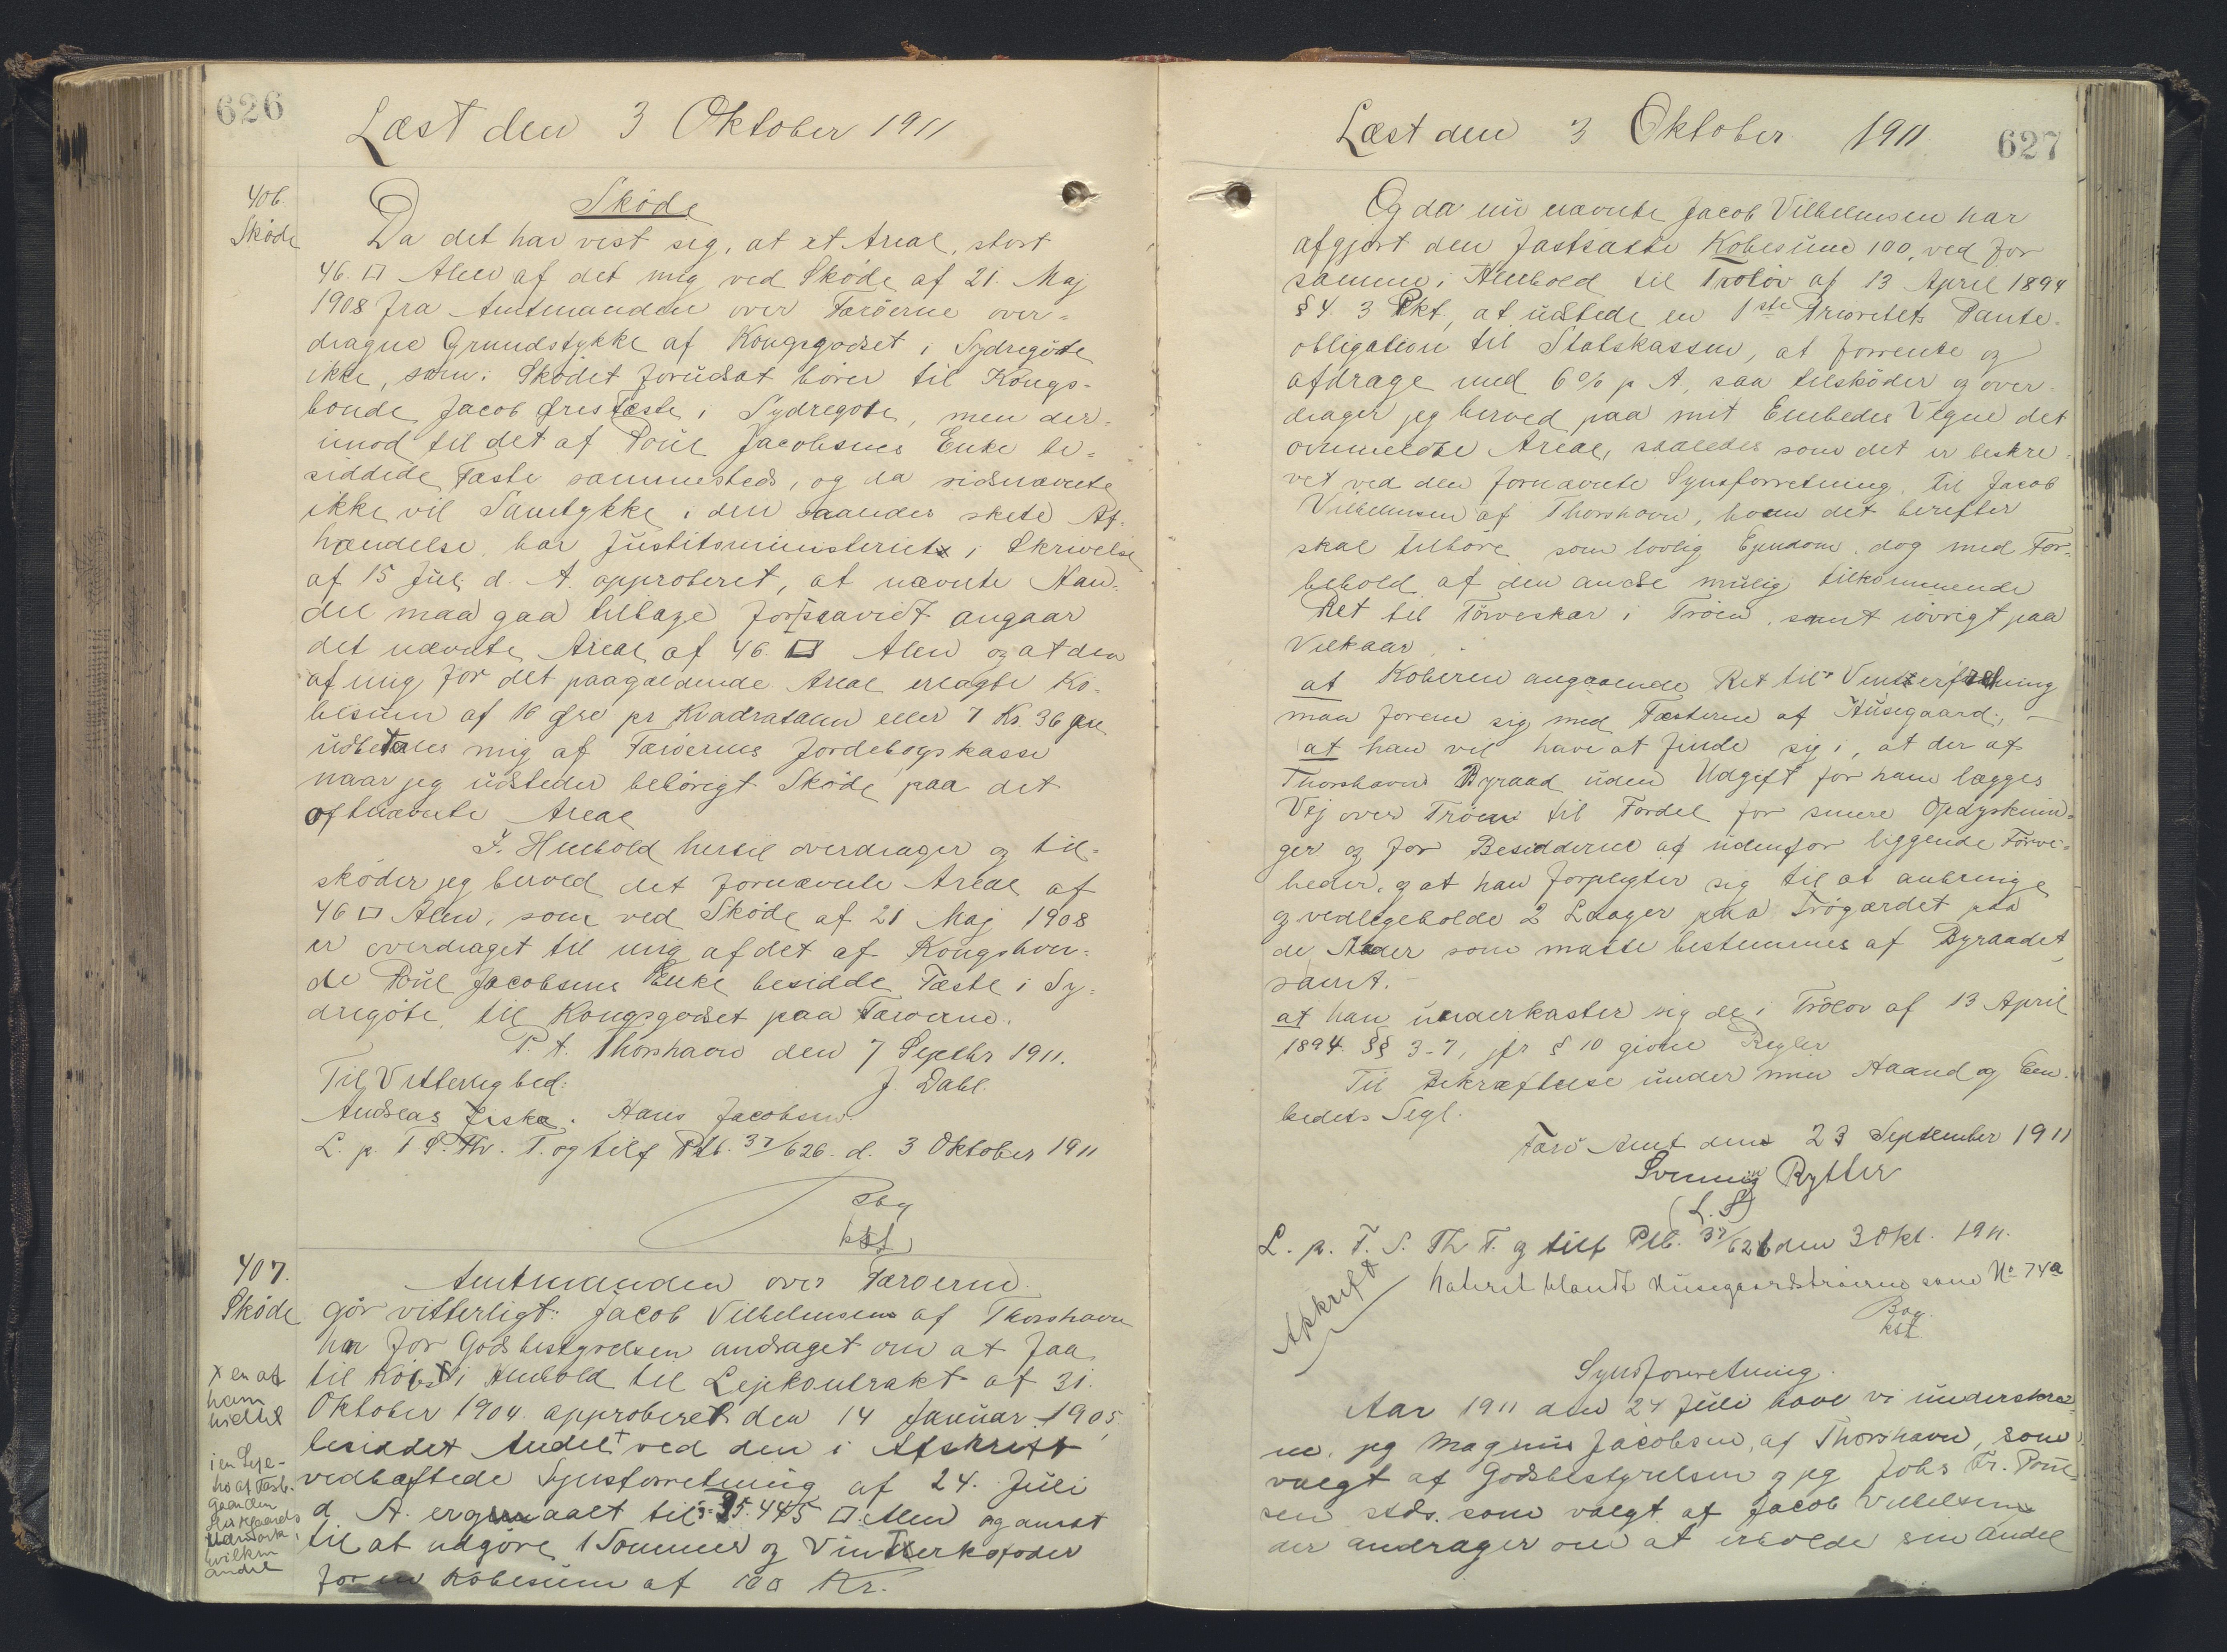 626
Læst den 3 Oktober 1911
406.
Sköde
Sköde
Da det har vist sig, at et Areal, stort
46. □ Alen af det mig ved Sköde af 21. Maj
1908 fra Amtmanden over Færöerne over=
dragne Grundstykke af Kongsgodset i Sydregöte
ikke, som i Sködet forudsat hörer til Kongs=
bonde Jacob fæste i Sydregöte, men der=
imod til det af Poul Jacobsens Enke be=
siddede Fæste sammesteds, og da sidsnævnte
ikke vil Samtykke i den saaledes skete Af=
hændelse, har Justitsministeriet i Skrivelse
af 15 Juli d. A. approberet, at nævnte Han=
del maa gaa tilbage forsaavidt angaar
det nævnte Areal af 46. □ Alen og at den
af mig for det paagældende Areal erlagte Kö=
besum af 16 Øre pr Kvadratalen eller 7 Kr 36 Øre
udbetales mig af Færöernes Jordebogskasse
naar jeg udsteder behörigt Sköde paa det
oftnævnte Areal
I. Henhold hertil overdrager og til=
sköder jeg herved det fornævnte Areal af
46 □ Alen, som ved Sköde af 21 Maj 1908
er overdraget til mig af det af Kongsbon=
de Poul Jacobsens Enke besidde Fæste i Sy=
dregöte, til Kongsgodset paa Færöerne.
P. t. Thorshavn den 7 Septbr 1911.
Til Vitterlighed: J. Dahl.
Andreas Ziska. Hans Jacobsen.
L. p. F. S. Th. T. og tilf Ptb. 37/626. d. 3 Oktober 1911
Bag
kst
407.
Sköde
Amtmanden over Færöerne
gör vitterligt: Jacob Vilhelmsen af Thorshavn
har for Godsbestyrelsen andraget om at faa
til Köbs i Henhold til Lejekontrakt af 31.
Oktober 1904 approberet den 14 Januar 1905,
besiddet Andel ved den i Afskrift
vedhæftede Synsforretning af 24. Juli
d. A. er opmaalt til 35.445 □ Alen og ansat
til at udgöre 1 Sommer og Vinterkofoder
for en Köbesum af 100 Kr.
x en af
ham
hidtil
i en Leje-
ho af Fæst.
gaarden
Husegaards
Udmark
hvilken
Andel
Læst den 3 Oktober 1911
627
Og da nu nævnte Jacob Vilhelmsen har
afgjort den fastsatte Köbesum 100, ved for
samme i Henhold til Trölov af 13 April 1894
§ 4. 3 Pkt, at udstede en 1ste Prioritets Pante-
obligation til Statskassen, at forrente og
afdrage med 6% p A, saa tilsköder og over-
drager jeg herved paa mit Embedes Vegne det
ommeldte Areal, saaledes som det er beskre=
vet ved den fornævnte Synsforretning, til Jacob
Vilhelmsen af Thorshavn, ham det herefter
skal tilhöre som lovlig Ejendom, dog med For=
behold af den andre mulig tilkommende
Ret til Törveskær i Tröen, samt iövrigt paa
Vilkaar,
at Köberen angaaende Ret til Vinterfredning
maa forene sig med Fæsterne af Husegaard, —
at han vil have at finde sig i, at der af
Thorshavns Byraad uden Udgift for ham lægges
Vej over Tröen til Fordel for senere Opdyrknin=
ger og for Besidderne af udenfor liggende Törve=
heder, og at han forpligter sig til at anbringe
og vedligeholde 2 Laager paa Trögærdet paa
de Steder som maatte bestemmes af Byraadet,
samt.
at han underkaster sig de i Trölov af 13 April
1894. §§ 3-7, jfr § 10 givne Regler
Til Bekræftelse under min Haand og Em-
bedets Segl.
Færö Amt den 23 September 1911
Svenning Rytter
(L. S)
L. p. F. S. Th T. og tilf Ptb. 37/626 den 3 Okt. 1911.
Noteret blandt Husegaardströerne som No 74a
Bag.
kst
Afskrift
Synsforretning.
Aar 1911 den 24 Juli have vi underskrev=
ne, jeg Magnus Jacobsen, af Thorshavn, som
valgt af Godsbestyrelsen og jeg Johs Fr. Poul=
sen stds. som valgt af Jacob Vilhelmsen
der andrager om at erholde sin Andel